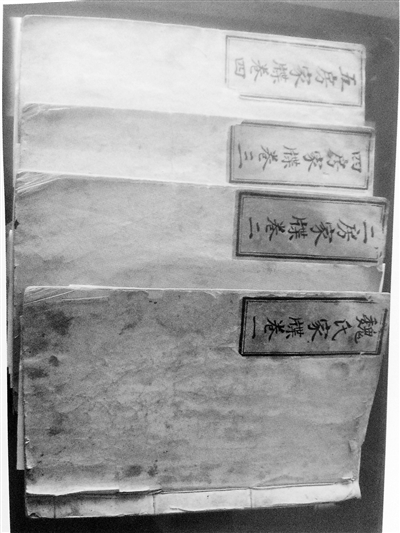 五房家牒卷四
四房家牒卷三
二房家牒卷二
魏氏家牒卷一